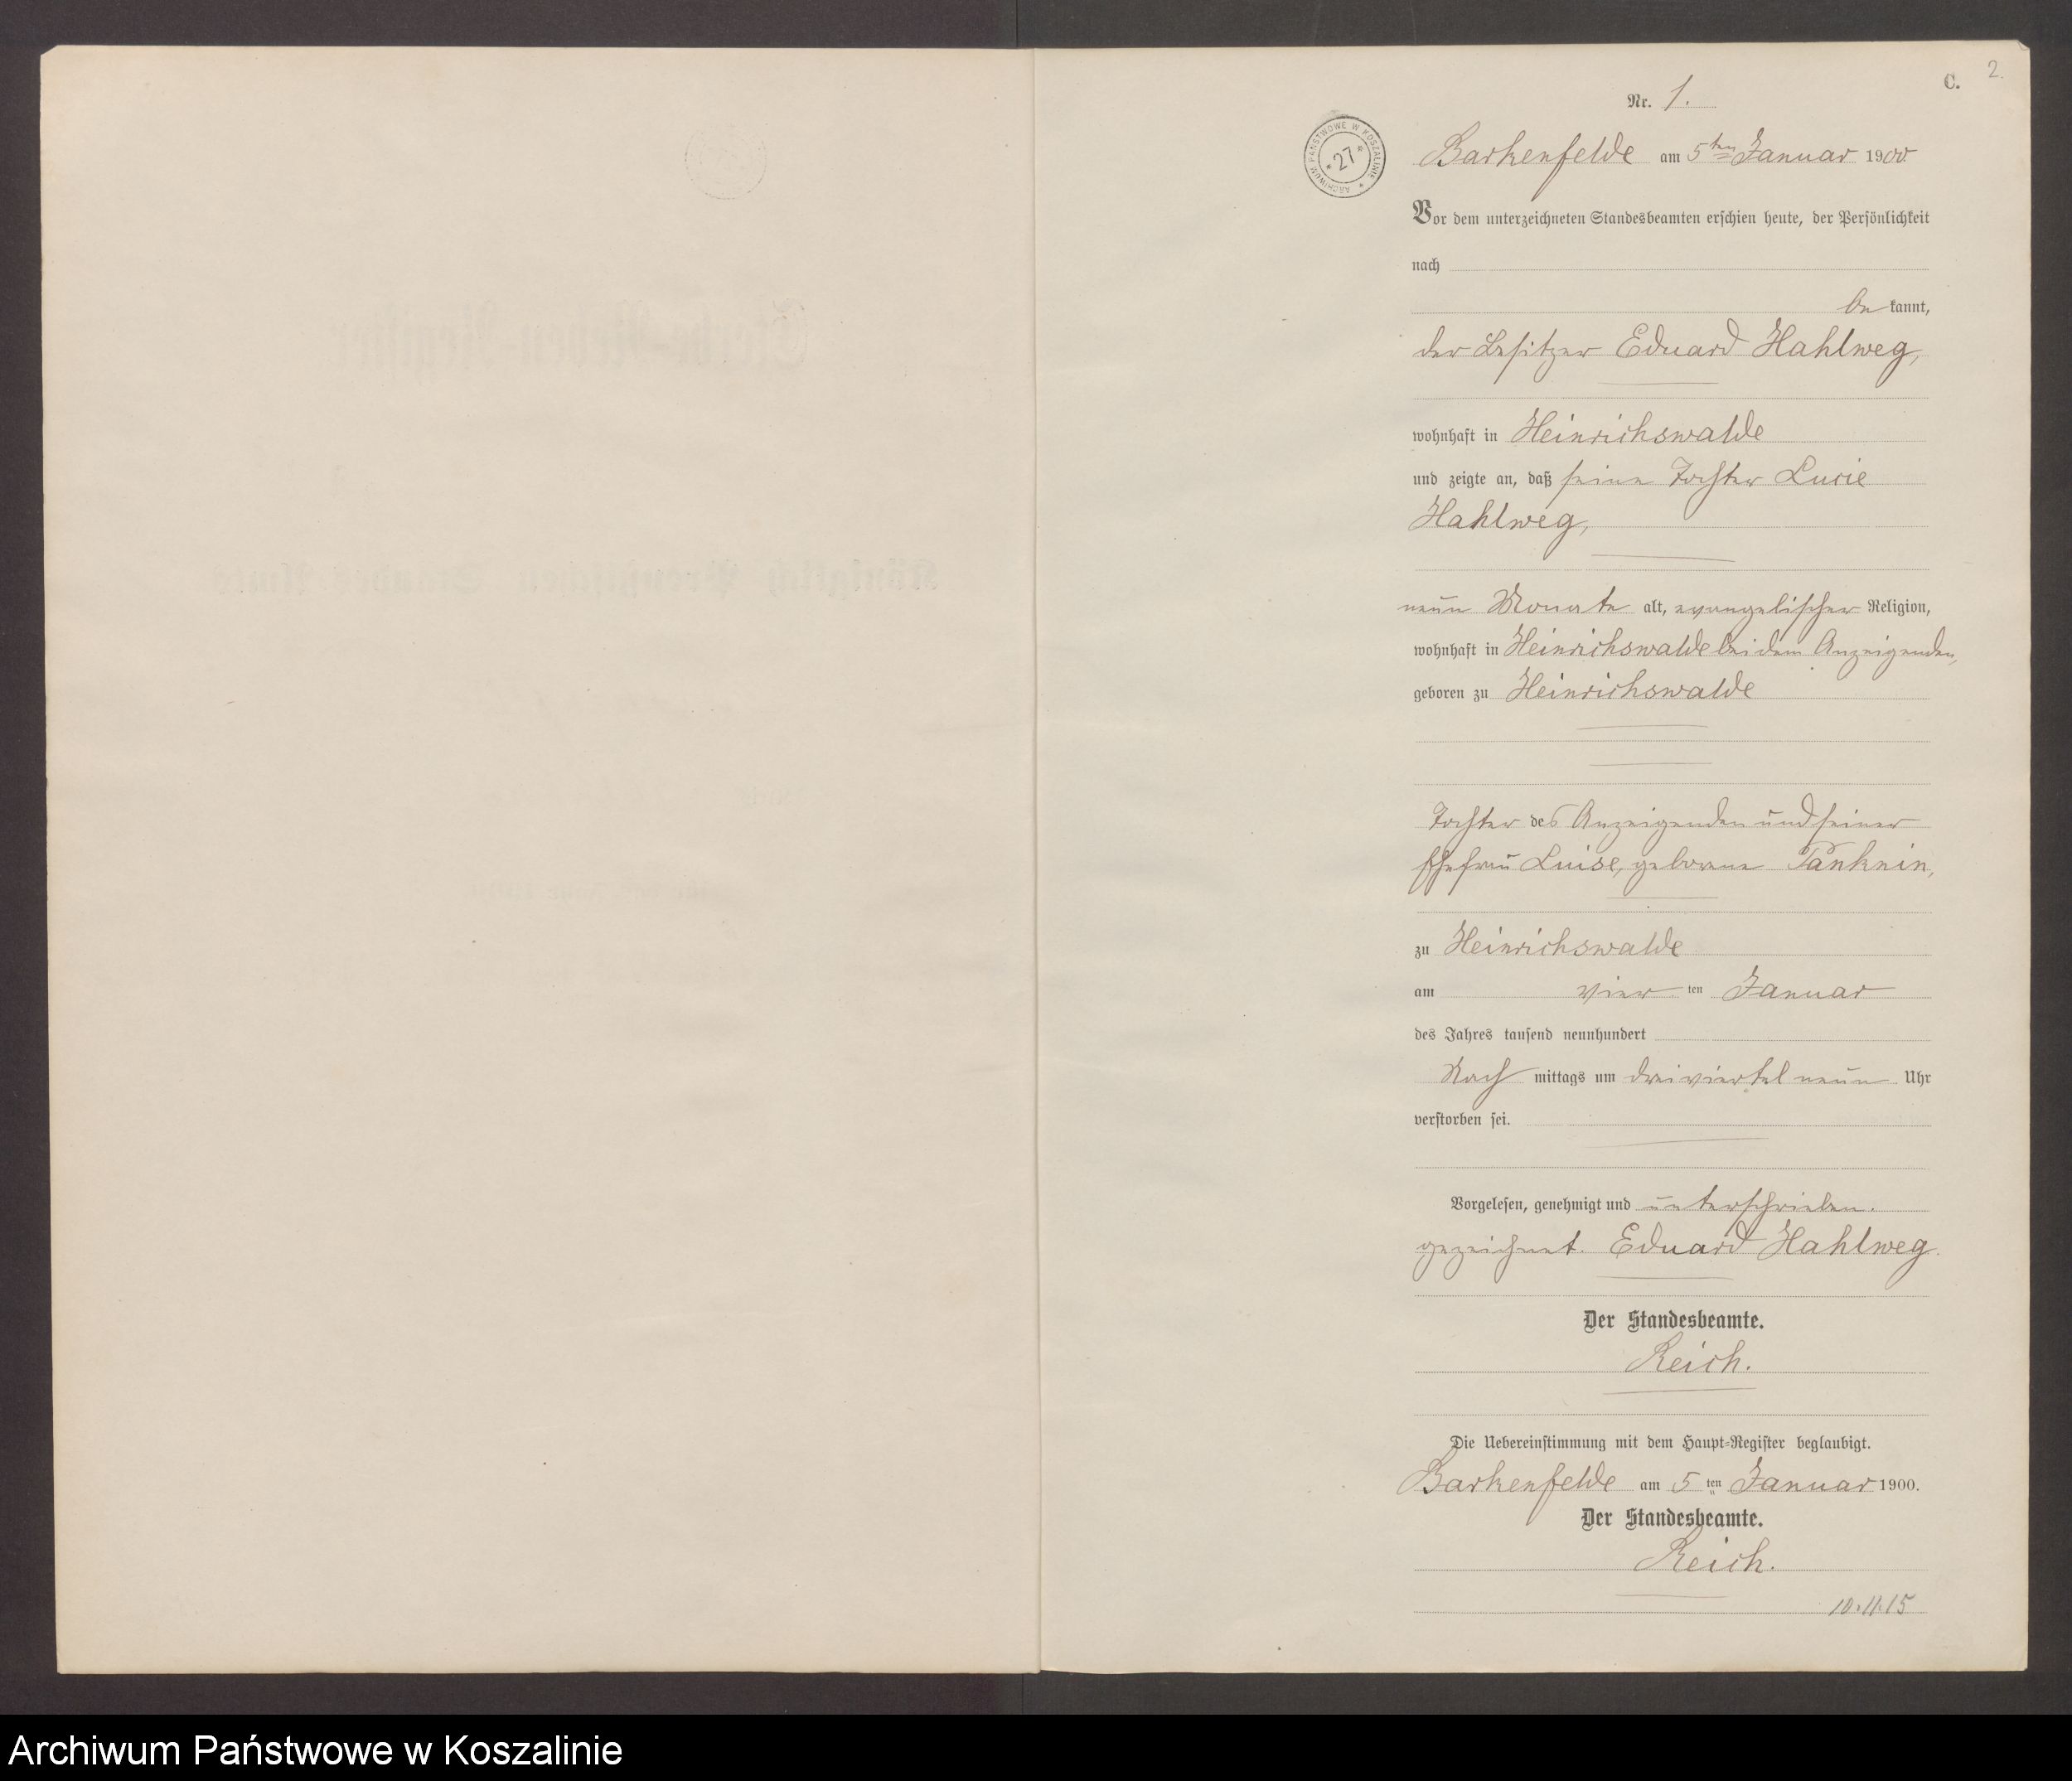 C.
2.
Nr. 1.
ARCHIWUM PAŃSTWOWE W KOSZALINIE * 27 *
Barkenfelde am 5ten Januar 1900
Vor dem unterzeichneten Standesbeamten erschien heute, der Persönlichkeit
nach
be kannt,
der Besitzer Eduard Hahlweg,
wohnhaft in Heinrichswalde
und zeigte an, daß seine Tochter Lucie
Hahlweg,
neun Monate alt, evangelischer Religion,
wohnhaft in Heinrichswalde bei dem Anzeigenden,
geboren zu Heinrichswalde
Tochter des Anzeigenden und seiner
Ehefrau Luise, geborene Panknin,
zu Heinrichswalde
am vier ten Januar
des Jahres tausend neunhundert
Nach mittags um dreiviertel neun Uhr
verstorben sei.
Vorgelesen, genehmigt und unterschrieben.
gezeichnet. Eduard Hahlweg.
Der Standesbeamte.
Reich.
Die Uebereinstimmung mit dem Haupt-Register beglaubigt.
Barkenfelde am 5 ten Januar 1900.
Der Standesbeamte.
Reich.
10.11.15
Archiwum Państwowe w Koszalinie